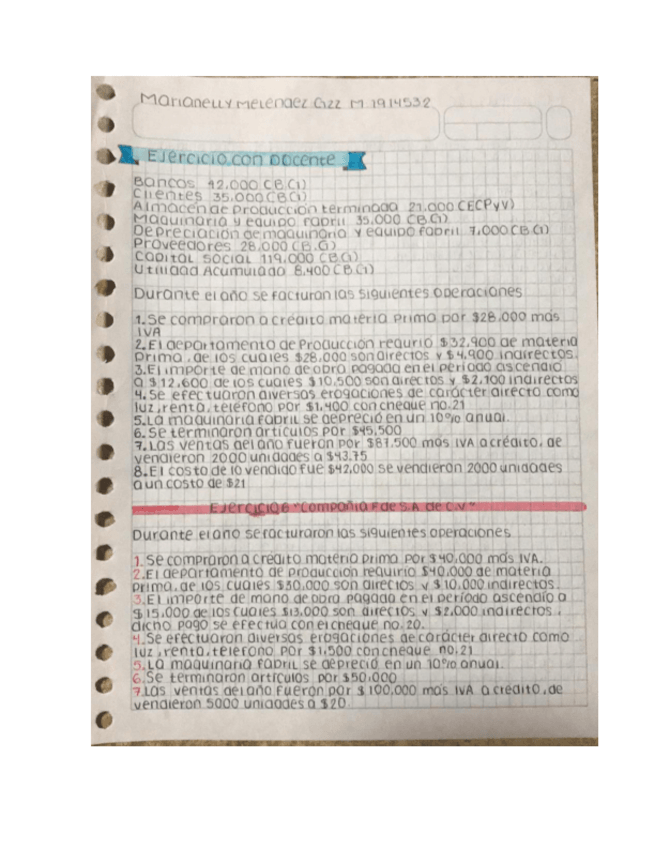 Marianelly Melendez Gzz M 1914532
Ejercicio con Docente
Bancos 42.000 CB(1)
Clientes 35.000 CB(1)
Almacen de Producción terminada 21.000 CECPyV)
Maquinaria y equipo fabril 35.000 CB(1)
Depreciación de maquinaria y equipo fabril 7,000 CB(1)
Proveedores 28,000 CB.(1)
Capital social 119,000 CB(1)
Utilidad Acumulada 8.400 CB.(1)
Durante el año se facturan las siguientes operaciones
1. Se compraron a crédito materia prima por $28.000 más
IVA
2. El departamento de Producción requirió $32,900 de materia
prima, de los cuales $28,000 son directos y $4,900 indirectos.
3. El importe de mano de obra pagada en el periodo ascendió
a $12,600 de los cuales $10,500 son directos y $2,100 indirectos
4. Se efectuaron diversas erogaciones de carácter directo como
luz, renta, telefono por $1,400 con cheque no.21
5. La maquinaria fabril se depreció en un 10% anual.
6. Se terminaron articulos por $45,500
7. Las ventas del año fueron por $87,500 más IVA a crédito, de
vendieron 2000 unidades a $43.75
8. El costo de lo vendido fue $42,000 se vendieron 2000 unidades
a un costo de $21
Ejercicio 6 "Compañia F de S.A. de C.V"
Durante el año se facturaron las siguientes operaciones
1. Se compraron a crédito materia prima por $40,000 más IVA.
2. El departamento de producción requirió $40,000 de materia
prima, de los cuales $30,000 son directos y $10,000 indirectos.
3. El importe de mano de obra pagada en el periodo ascendió a
$15,000 de los cuales $13,000 son directos y $2,000 indirectos,
dicho pago se efectua con el cheque no. 20.
4. Se efectuaron diversas erogaciones de carácter directo como
luz, renta, telefono por $1,500 con cheque no.21
5. La maquinaria fabril se depreció en un 10% anual.
6. Se terminaron artículos por $50,000
7. Las ventas del año fueron por $100,000 más IVA a crédito, de
vendieron 5000 unidades a $20